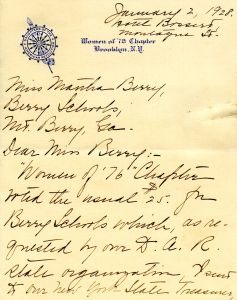 January 2, 1928.
Hotel Bossert
Montague St.
Women of '76 Chapter
Brooklyn, N.Y.
Miss Martha Berry,
Berry Schools,
Mt. Berry, Ga
Dear Miss Berry:-
"Women of '76" Chapter
voted the usual $25. for
Berry Schools which, as re-
quested by our D. A. R.
state organization, I send
to our New York State Treasurer,